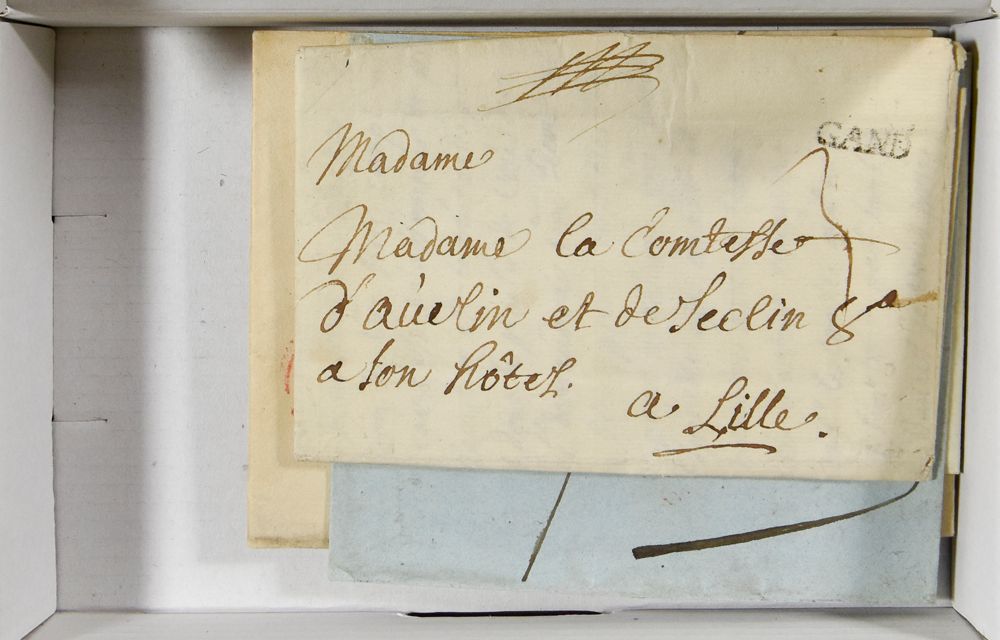 GAND
Madame
Madame la Comtesse
d'auelin et de Seclin &a
a son hôtel.
a Lille.